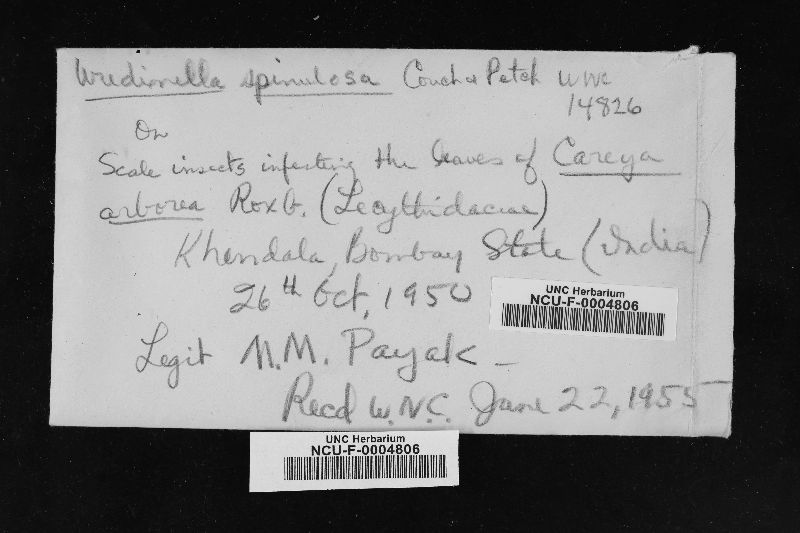 Uredinella spinulosa Couch & Petch UNC
14826
On
Scale insects infesting the leaves of Careya
arborea Roxb. (Lecythidaceae)
Khandala, Bombay State (India)
26th Oct, 1950
Legit M.M. Payak -
Recd W.N.C. June 22, 1955
UNC Herbarium
NCU-F-0004806
UNC Herbarium
NCU-F-0004806